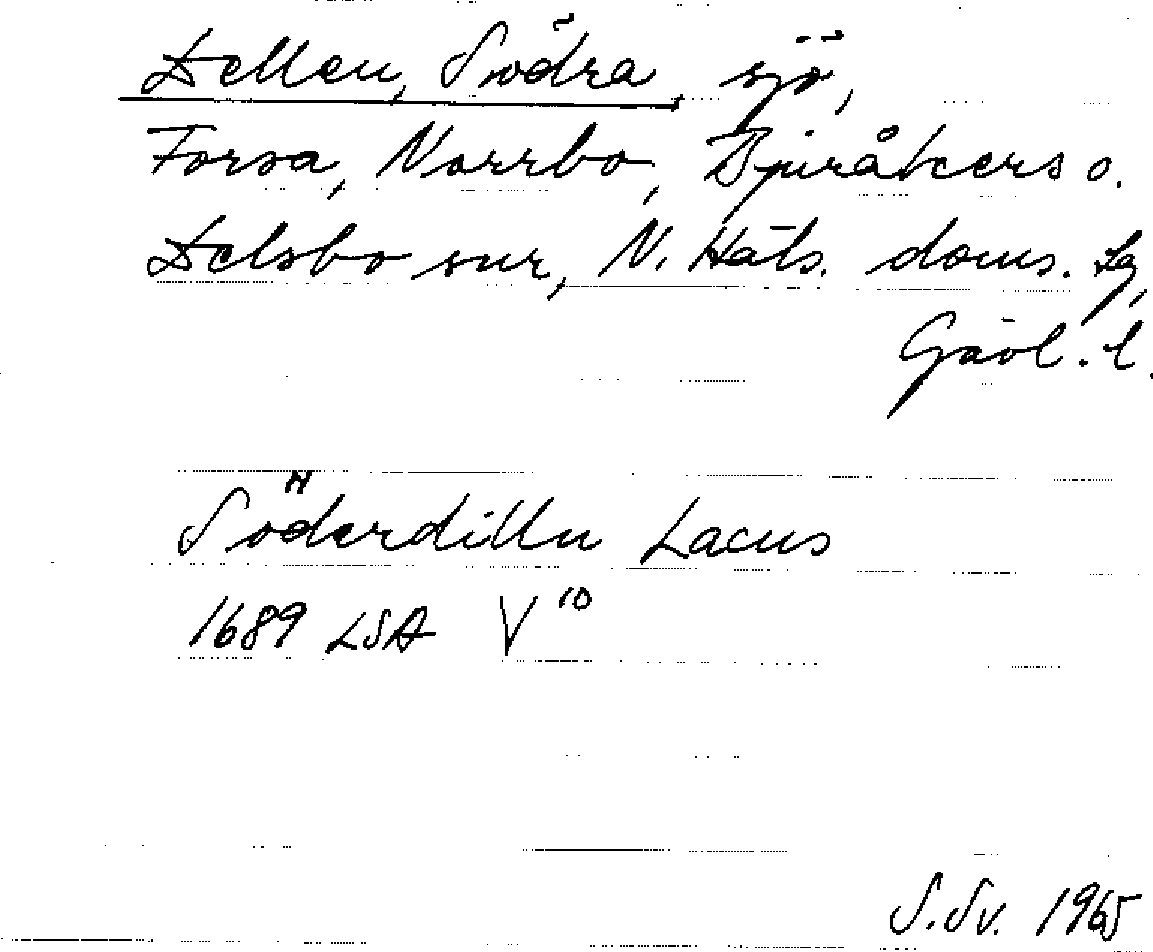 Dellen, Södra, sjö,
Forsa, Norrbo, Bjuråkers o.
Delsbo snr, N. Häls. doms. Lg,
Gävl. l.
Söderdilln Lacus
1689 LSA V 10
S.Sv. 1965